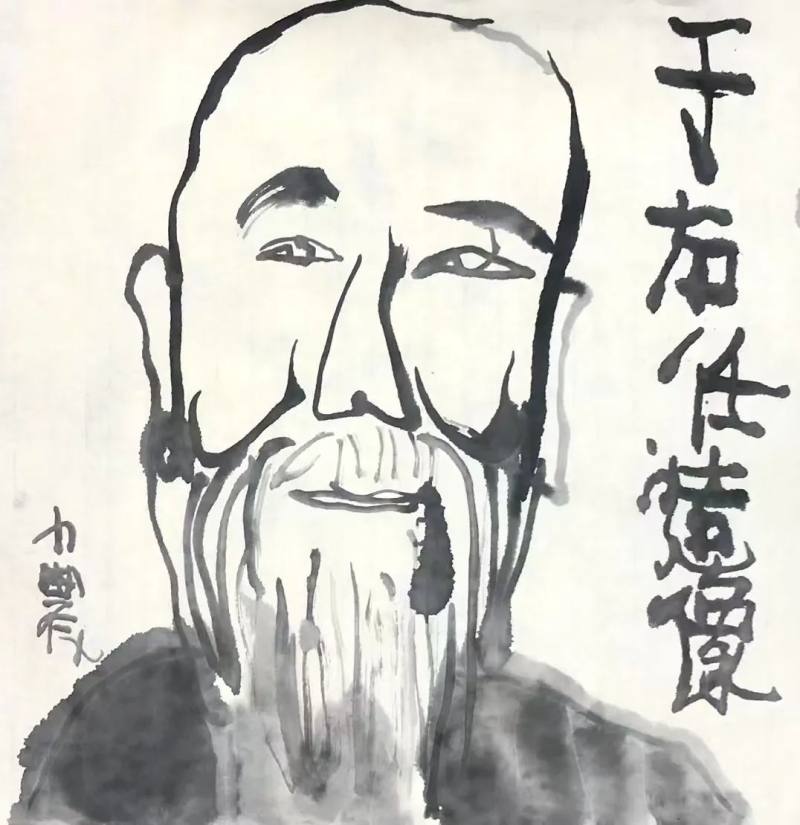 于右任造像